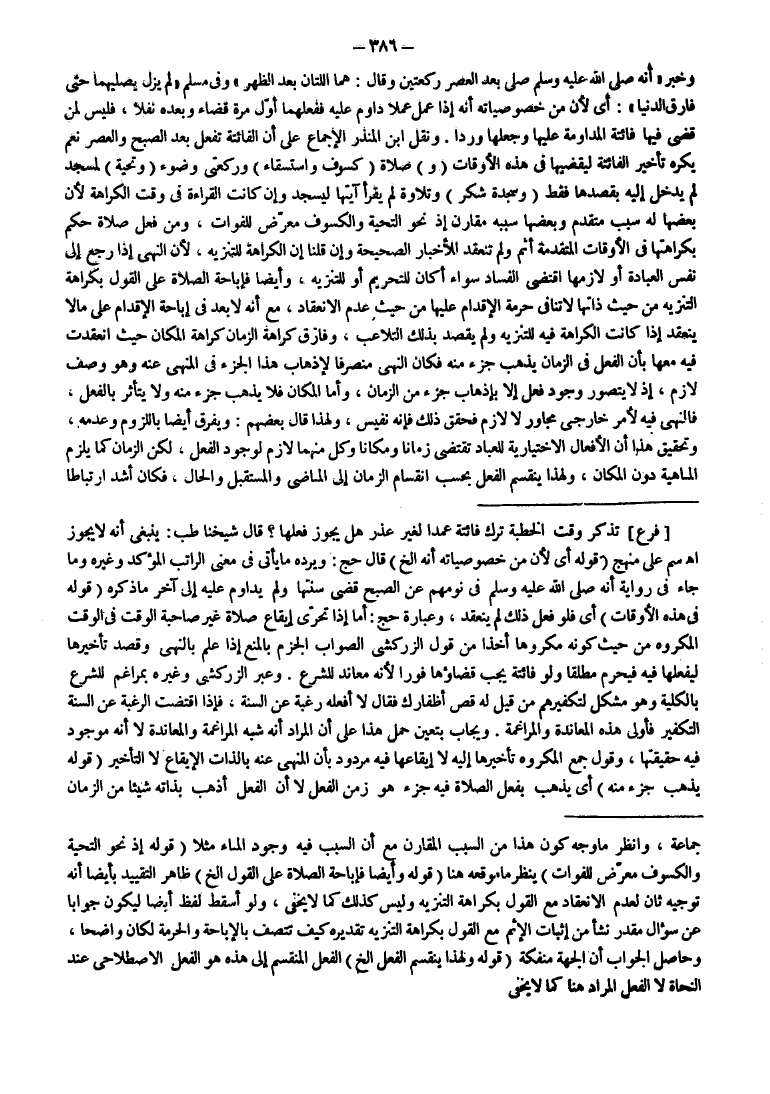 — ٣٨٦ —
وخبر « أنه صلى الله عليه وسلم صلى بعد العصر ركعتين وقال : هما اللتان بعد الظهر » وفى مسلم « لم يزل يصليهما حتى
فارق الدنيا » : أى لأن من خصوصياته أنه إذا عمل عملا داوم عليه ففعلهما أوّل مرة قضاء وبعده نفلا ، فليس لمن
قضى فيها فائتة المداومة عليها وجعلها وردا . ونقل ابن المنذر الإجماع على أن الفائتة تفعل بعد الصبح والعصر نعم
يكره تأخير الفائتة ليقضيها فى هذه الأوقات ( و ) صلاة ( كسوف واستسقاء ) وركعتى وضوء ( وتحية ) لمسجد
لم يدخل إليه بقصدها فقط ( وسجدة شكر ) وتلاوة لم يقرأ آيتها ليسجد وإن كانت القراءة فى وقت الكراهة لأن
بعضها له سبب متقدم وبعضها سببه مقارن إذ نحو التحية والكسوف معرّض للفوات ، ومن فعل صلاة حكم
بكراهتها فى الأوقات المتقدمة أثم ولم تنعقد للأخبار الصحيحة وإن قلنا إن الكراهة للتنزيه ، لأن النهى إذا رجع إلى
نفس العبادة أو لازمها اقتضى الفساد سواء أكان للتحريم أو للتنزيه ، وأيضا فإباحة الصلاة على القول بكراهة
التنزيه من حيث ذاتها لاتنافى حرمة الإقدام عليها من حيث عدم الانعقاد ، مع أنه لابعد فى إباحة الإقدام على مالا
ينعقد إذا كانت الكراهة فيه للتنزيه ولم يقصد بذلك التلاعب ، وفارق كراهة الزمان كراهة المكان حيث انعقدت
فيه معها بأن الفعل فى الزمان يذهب جزء منه فكان النهى منصرفا لإذهاب هذا الجزء فى المنهى عنه وهو وصف
لازم ، إذ لايتصور وجود فعل إلا بإذهاب جزء من الزمان ، وأما المكان فلا يذهب جزء منه ولا يتأثر بالفعل ،
فالنهى فيه لأمر خارجى مجاور لا لازم فحقق ذلك فإنه نفيس ، ولهذا قال بعضهم : ويفرق أيضا باللزوم وعدمه ،
وتحقيق هذا أن الأفعال الاختيارية للعباد تقتضى زمانا ومكانا وكل منهما لازم لوجود الفعل ، لكن الزمان كما يلزم
الماهية دون المكان ، ولهذا ينقسم الفعل بحسب انقسام الزمان إلى الماضى والمستقبل والحال ، فكان أشد ارتباطا
[ فرع ] تذكر وقت الخطبة ترك فائتة عمدا لغير عذر هل يجوز فعلها ؟ قال شيخنا طب : ينبغى أنه لايجوز
اه سم على منهج ( قوله أى لأن من خصوصياته أنه الخ ) قال حج : ويرده مايأتى فى معنى الراتب المؤكد وغيره وما
جاء فى رواية أنه صلى الله عليه وسلم فى نومهم عن الصبح قضى سنتها ولم يداوم عليه إلى آخر ماذكره ( قوله
فى هذه الأوقات ) أى فلو فعل ذلك لم ينعقد ، وعبارة حج : أما إذا تحرّى إيقاع صلاة غير صاحبة الوقت فى الوقت
المكروه من حيث كونه مكروها أخذا من قول الزركشى الصواب الجزم بالمنع إذا علم بالنهى وقصد تأخيرها
ليفعلها فيه فيحرم مطلقا ولو فائتة يجب قضاؤها فورا لأنه معاند للشرع . وعبر الزركشى وغيره بمراغم للشرع
بالكلية وهو مشكل لتكفيرهم من قيل له قص أظفارك فقال لا أفعله رغبة عن السنة ، فإذا اقتضت الرغبة عن السنة
التكفير فأولى هذه المعاندة والمراغمة . ويجاب بتعين حمل هذا على أن المراد أنه شبه المراغمة والمعاندة لا أنه موجود
فيه حقيقتها ، وقول جمع المكروه تأخيرها إليه لا إيقاعها فيه مردود بأن المنهى عنه بالذات الإيقاع لا التأخير ( قوله
يذهب جزء منه ) أى يذهب بفعل الصلاة فيه جزء هو زمن الفعل لا أن الفعل أذهب بذاته شيئا من الزمان
جماعة ، وانظر ماوجه كون هذا من السبب المقارن مع أن السبب فيه وجود الماء مثلا ( قوله إذ نحو التحية
والكسوف معرّض للفوات ) ينظر ماموقعه هنا ( قوله وأيضا فإباحة الصلاة على القول الخ ) ظاهر التقييد بأيضا أنه
توجيه ثان لعدم الانعقاد مع القول بكراهة التنزيه وليس كذلك كما لايخفى ، ولو أسقط لفظ أيضا ليكون جوابا
عن سؤال مقدر نشأ من إثبات الإثم مع القول بكراهة التنزيه تقديره كيف تتصف بالإباحة والحرمة لكان واضحا ،
وحاصل الجواب أن الجهة منفكة ( قوله ولهذا ينقسم الفعل الخ ) الفعل المنقسم إلى هذه هو الفعل الاصطلاحى عند
النحاة لا الفعل المراد هنا كما لايخفى